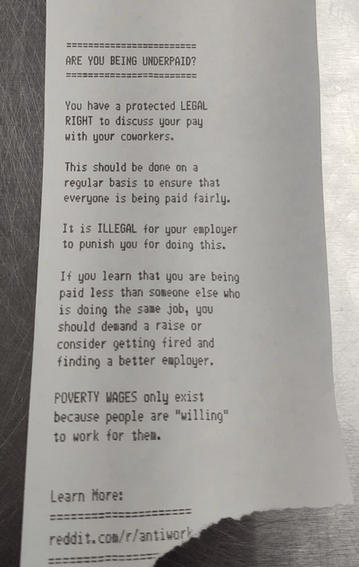 =======================
ARE YOU BEING UNDERPAID?
=======================
You have a protected LEGAL
RIGHT to discuss your pay
with your coworkers.
This should be done on a
regular basis to ensure that
everyone is being paid fairly.
It is ILLEGAL for your employer
to punish you for doing this.
If you learn that you are being
paid less than someone else who
is doing the same job, you
should demand a raise or
consider getting fired and
finding a better employer.
POVERTY WAGES only exist
because people are "willing"
to work for them.
Learn More:
=======================
reddit.com/r/antiwork
==================